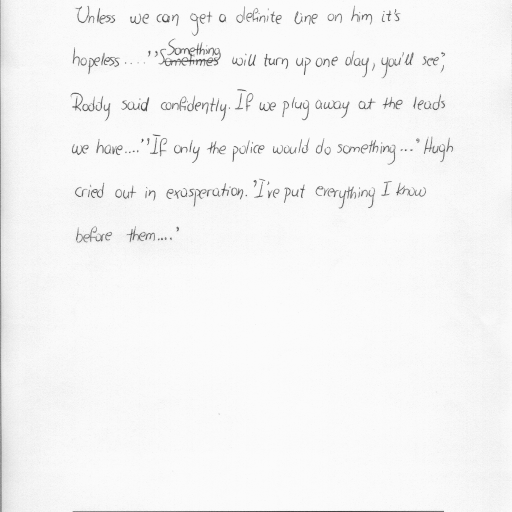 Unless we can get a definite line on him it's
hopeless....''Something will turn up one day, you'll see',
Roddy said confidently. If we plug away at the leads
we have....''If only the police would do something...' Hugh
cried out in exasperation. 'I've put everything I know
before them....'